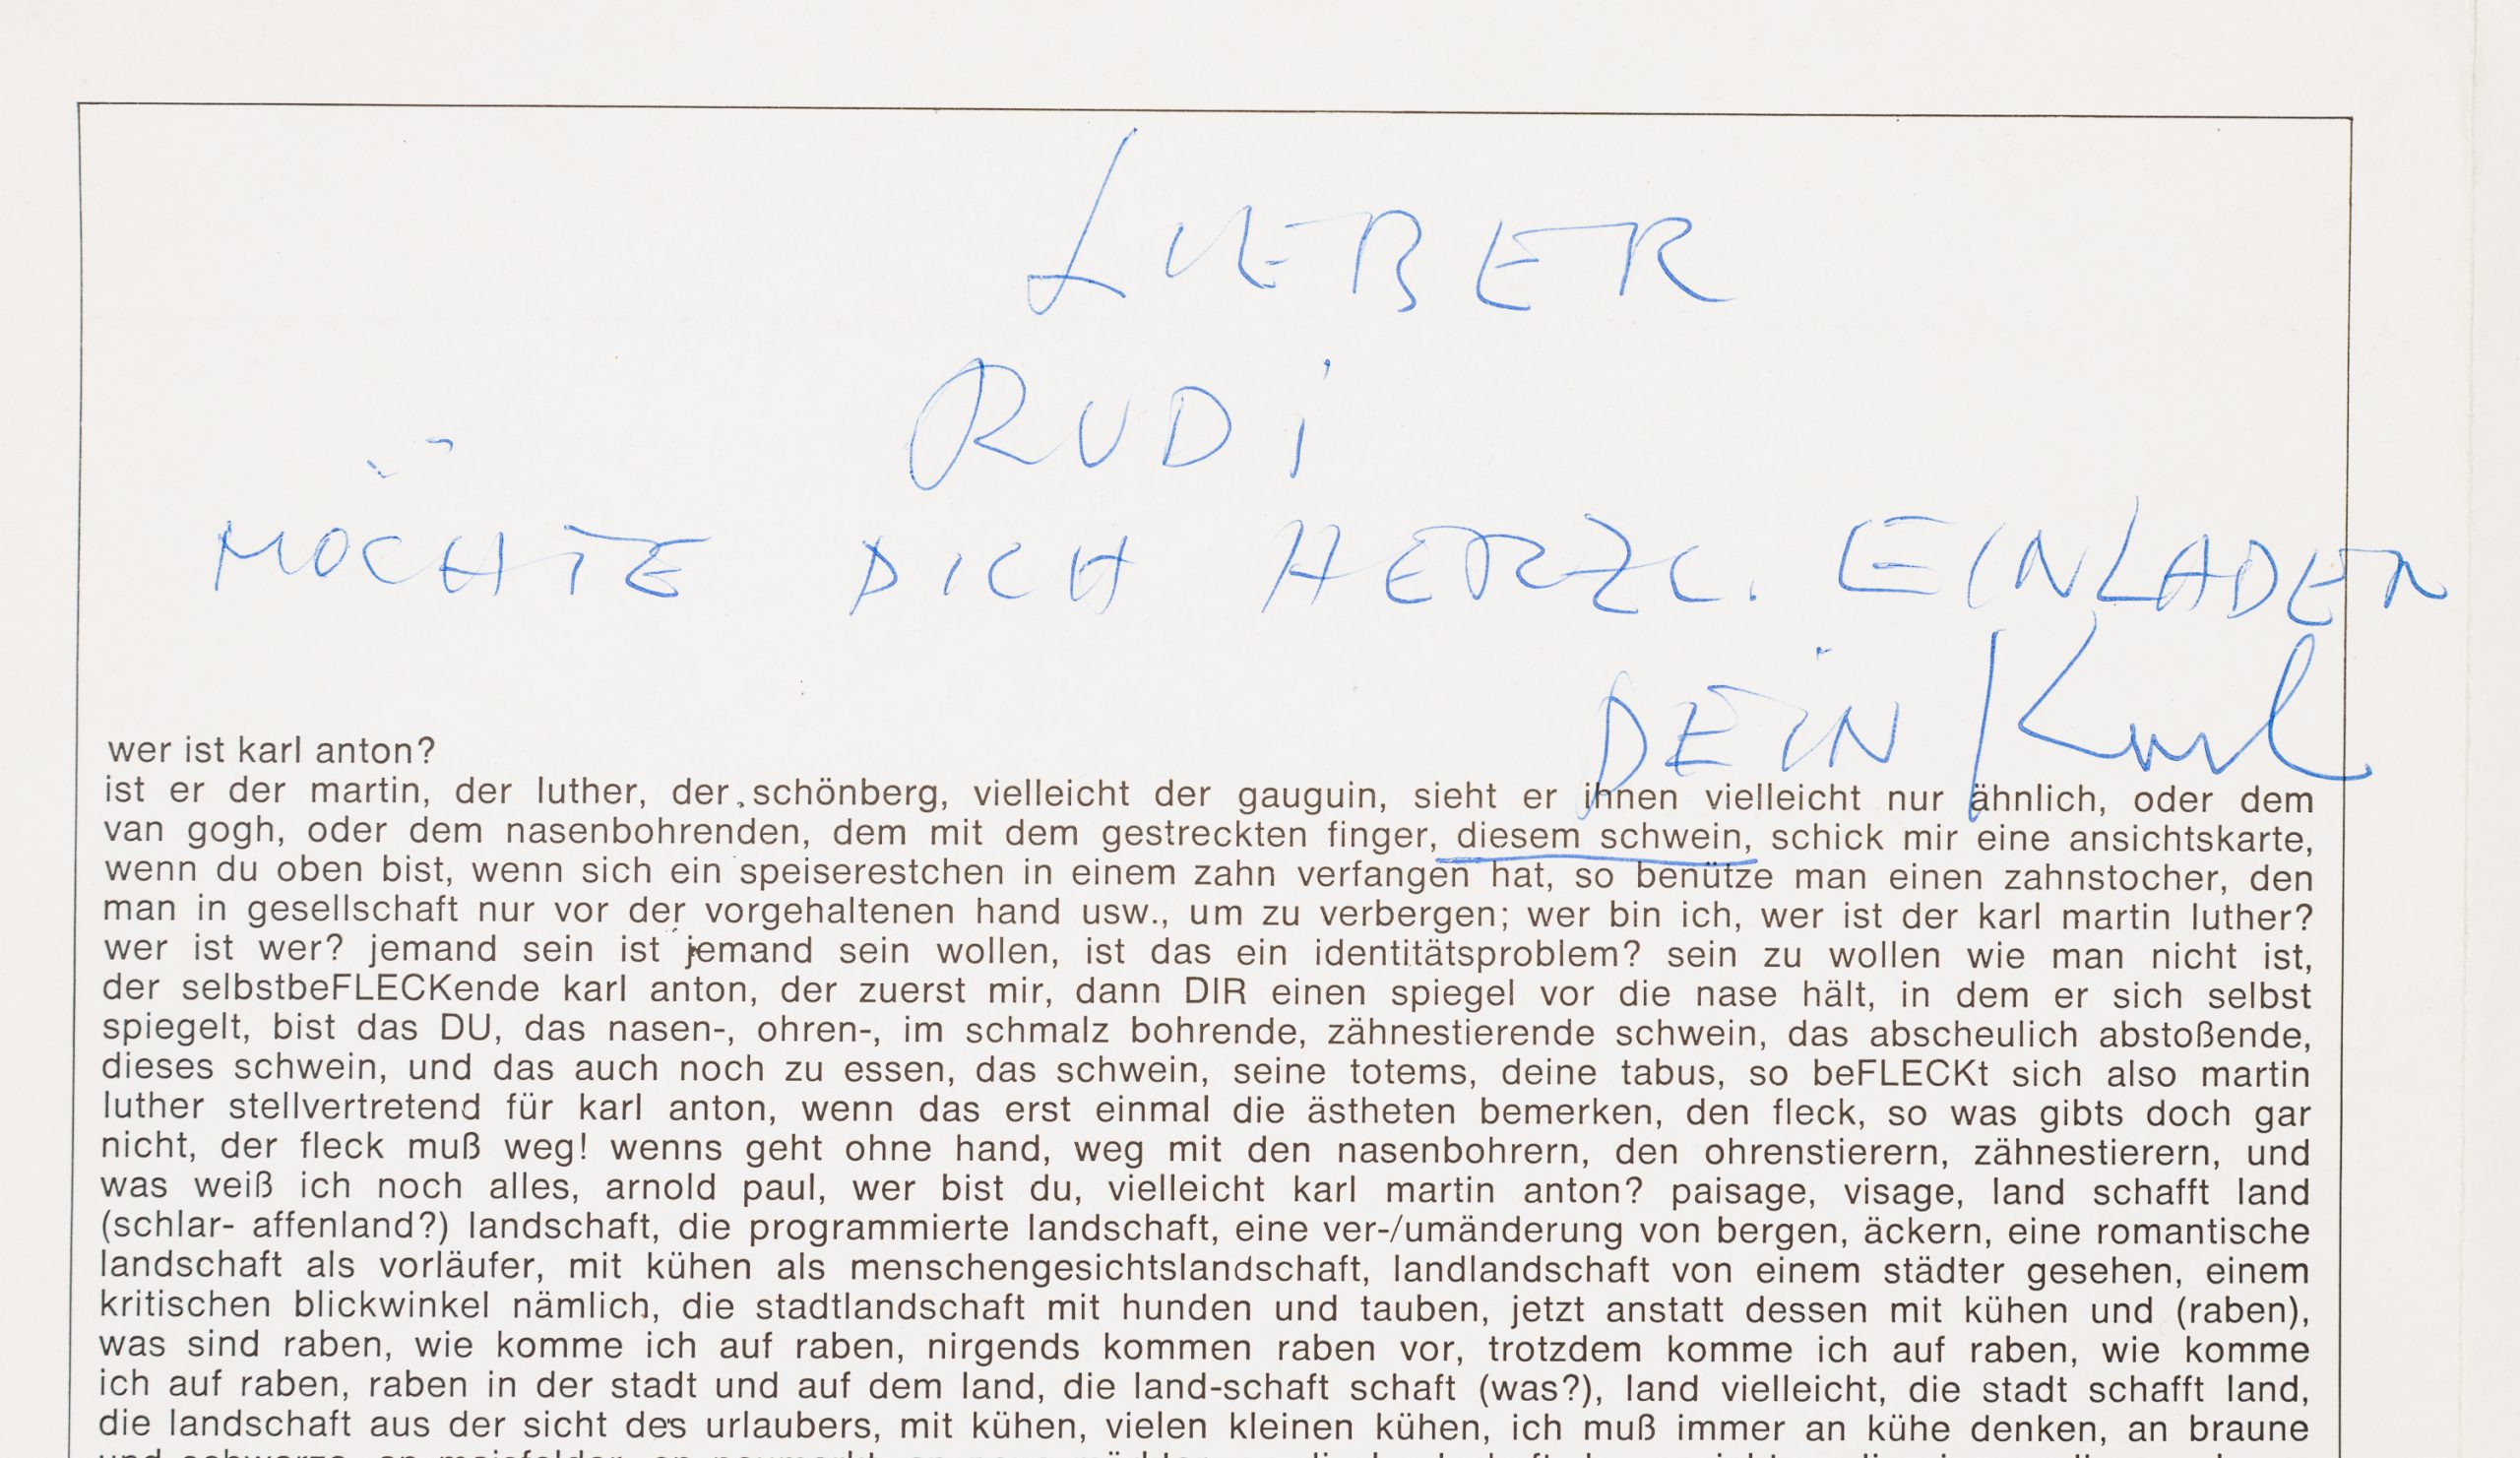 LIEBER
RUDI
MÖCHTE DICH HERZL. EINLADEN
DEIN Karl
wer ist karl anton?
ist er der martin, der luther, der schönberg, vielleicht der gauguin, sieht er ihnen vielleicht nur ähnlich, oder dem
van gogh, oder dem nasenbohrenden, dem mit dem gestreckten finger, diesem schwein, schick mir eine ansichtskarte,
wenn du oben bist, wenn sich ein speiserestchen in einem zahn verfangen hat, so benütze man einen zahnstocher, den
man in gesellschaft nur vor der vorgehaltenen hand usw., um zu verbergen; wer bin ich, wer ist der karl martin luther?
wer ist wer? jemand sein ist jemand sein wollen, ist das ein identitätsproblem? sein zu wollen wie man nicht ist,
der selbstbeFLECKende karl anton, der zuerst mir, dann DIR einen spiegel vor die nase hält, in dem er sich selbst
spiegelt, bist das DU, das nasen-, ohren-, im schmalz bohrende, zähnestierende schwein, das abscheulich abstoßende,
dieses schwein, und das auch noch zu essen, das schwein, seine totems, deine tabus, so beFLECKt sich also martin
luther stellvertretend für karl anton, wenn das erst einmal die ästheten bemerken, den fleck, so was gibts doch gar
nicht, der fleck muß weg! wenns geht ohne hand, weg mit den nasenbohrern, den ohrenstierern, zähnestierern, und
was weiß ich noch alles, arnold paul, wer bist du, vielleicht karl martin anton? paisage, visage, land schafft land
(schlar- affenland?) landschaft, die programmierte landschaft, eine ver-/umänderung von bergen, äckern, eine romantische
landschaft als vorläufer, mit kühen als menschengesichtslandschaft, landlandschaft von einem städter gesehen, einem
kritischen blickwinkel nämlich, die stadtlandschaft mit hunden und tauben, jetzt anstatt dessen mit kühen und (raben),
was sind raben, wie komme ich auf raben, nirgends kommen raben vor, trotzdem komme ich auf raben, wie komme
ich auf raben, raben in der stadt und auf dem land, die land-schaft schaft (was?), land vielleicht, die stadt schafft land,
die landschaft aus der sicht des urlaubers, mit kühen, vielen kleinen kühen, ich muß immer an kühe denken, an braune